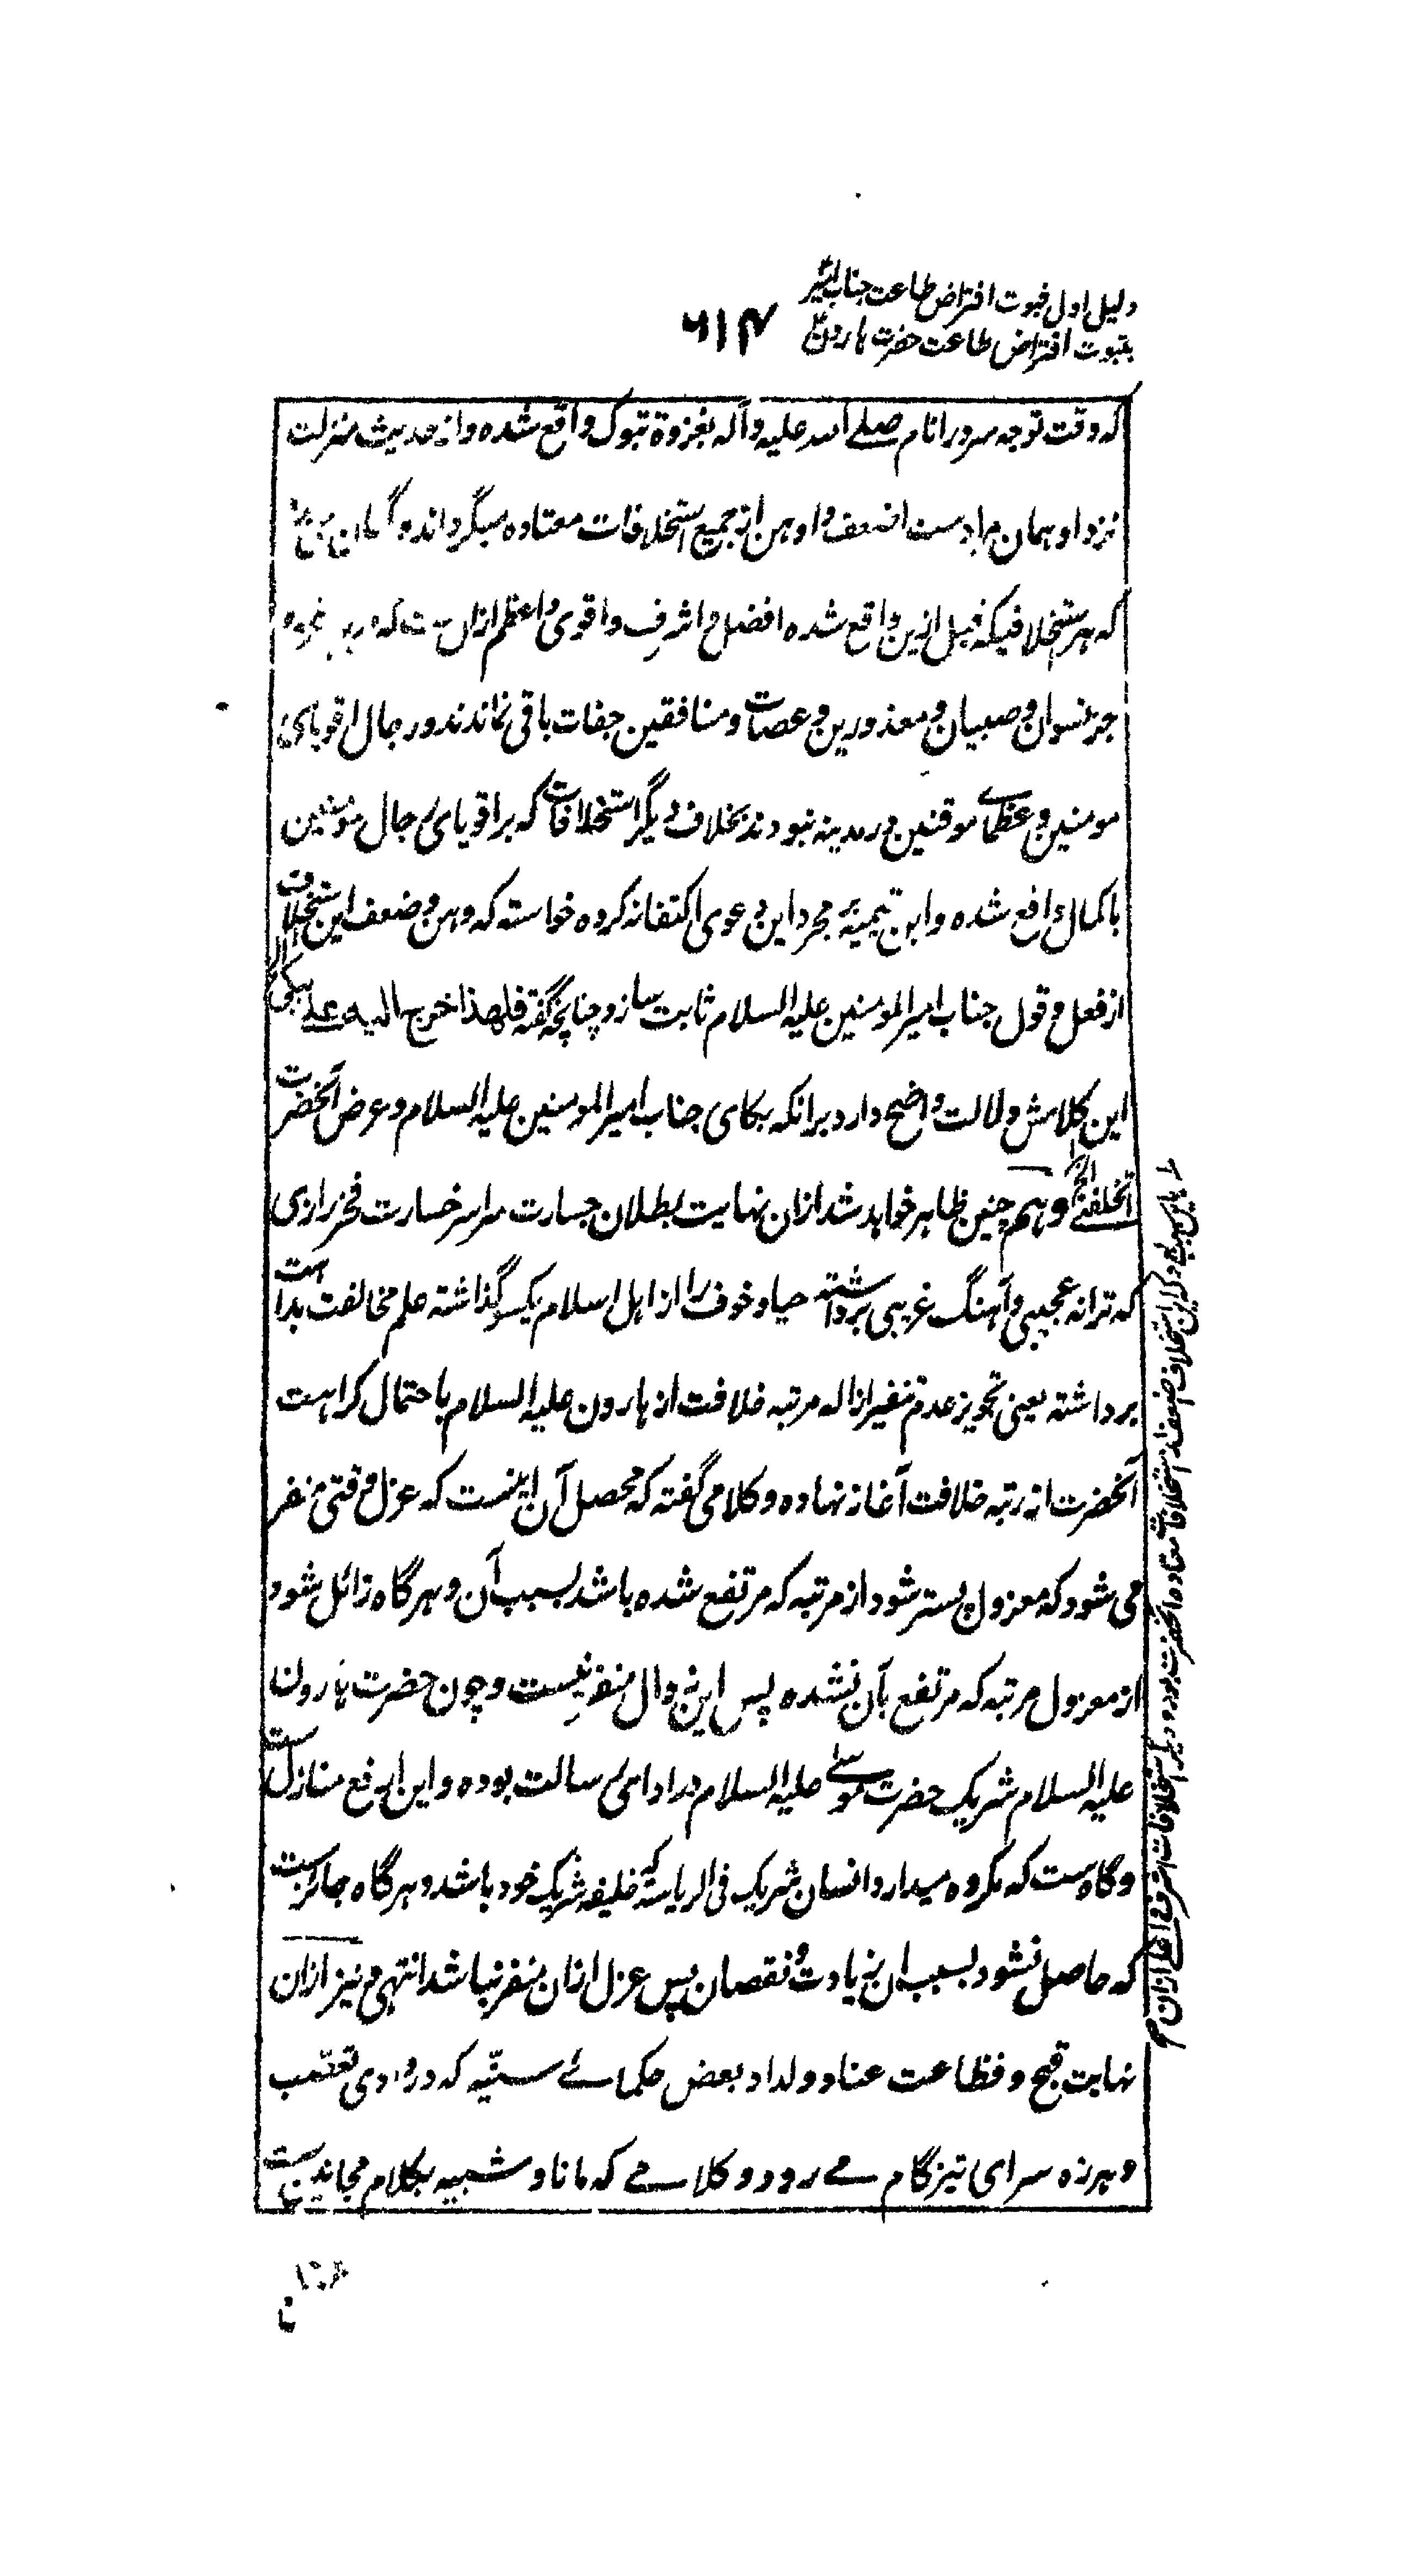 دلیل اول ثبوت افتراض طاعت جناب امیر
بثبوت افتراض طاعت حضرت هارون
۶۱۴
که وقت توجه سرور انام صلے الله علیه وآله بغزوة تبوک واقع شده واز حدیث منزلت
نزد او همان مرادست اضعف و اوهن از جمیع استخلافات معتاده میگرداند و گمان
که هر استخلافیکه قبل ازین واقع شده افضل و اشرف و اقوی و اعظم ازان ست که در
جز نسوان و صبیان و معذورین و عصات و منافقین جفات باقی نماندند و رجال اقویای
مومنین و عظمای موقنین در مدینه نبودند بخلاف دیگر استخلافات که بر اقویای رجال مومنین
باکمال واقع شده و ابن تیمیه بر مجرد این دعوی اکتفا نه کرده خواسته که وهن و ضعف این استخلاف
از فعل و قول جناب امیرالمومنین علیه السلام ثابت سازد چنانچه گفته فلهذا خرج الیه علی یبکی الخ
این کلامش دلالت واضح دارد برانکه بکای جناب امیرالمومنین علیه السلام و عرض آنحضرت
أتخلفنی الخ وهم چنین ظاهر خواهد شد ازان نهایت بطلان جسارت سراسر خسارت فخر رازی
که ترانه عجیبی و آهنگ غریبی برداشته حیا و خوف را از اهل اسلام یکسو گذاشته علم مخالفت بداهت
برداشته یعنی تجویز عدم تنفیر ازاله مرتبه خلافت از هارون علیه السلام باحتمال کراهت
آنحضرت از رتبه خلافت آغاز نهاده و کلامی گفته که محصل آن اینست که عزل وقتی منفر
می شود که معزول پستر شود از مرتبه که مرتفع شده باشد بسبب آن و هرگاه زائل شود
از معزول مرتبه که مرتفع بآن نشده پس این زوال منفر نیست و چون حضرت هارون
علیه السلام شریک حضرت موسے علیه السلام در ادای رسالت بوده و این ارفع منازل ست
و گاه ست که مکروه میدارد انسان شریک فی الریاسة که خلیفه شریک خود باشد و هرگاه جائز ست
که حاصل نشود بسبب ان زیادت و نقصان پس عزل ازان منفر نباشد انتهی و نیز ازان
نهایت قبح و فظاعت عناد و لداد بعض حکمائے سنیه که در وادی تعصب
و هرزه سرای تیزگام مے رود و کلامے که مانا و شبیه بکلام مجانین ست